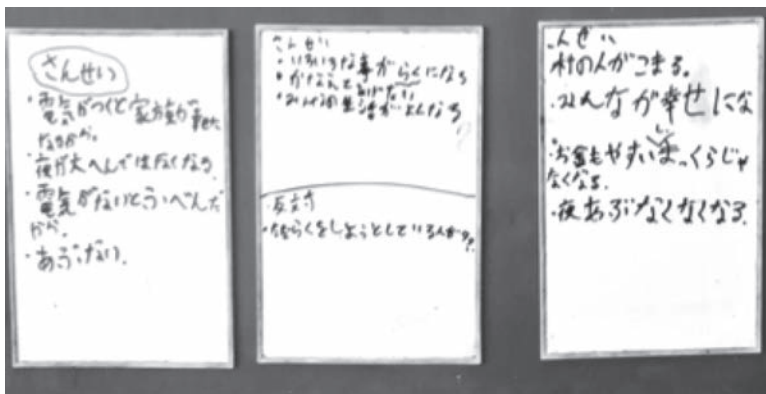 さんせい
・電気がつくと家族が
なるから。
・夜が大へんではなくなる。
・電気がないとたいへんだ
から。
・あぶない。
さんせい
・いろいろな事がらくになる
・みんなの生活がよくなる
反対
・らくをしようとしている
んせい
村の人がこまる。
・みんなが幸せにな
・お金もやすいしまっくらじゃ
なくなる。
・夜あぶなくなくなる。